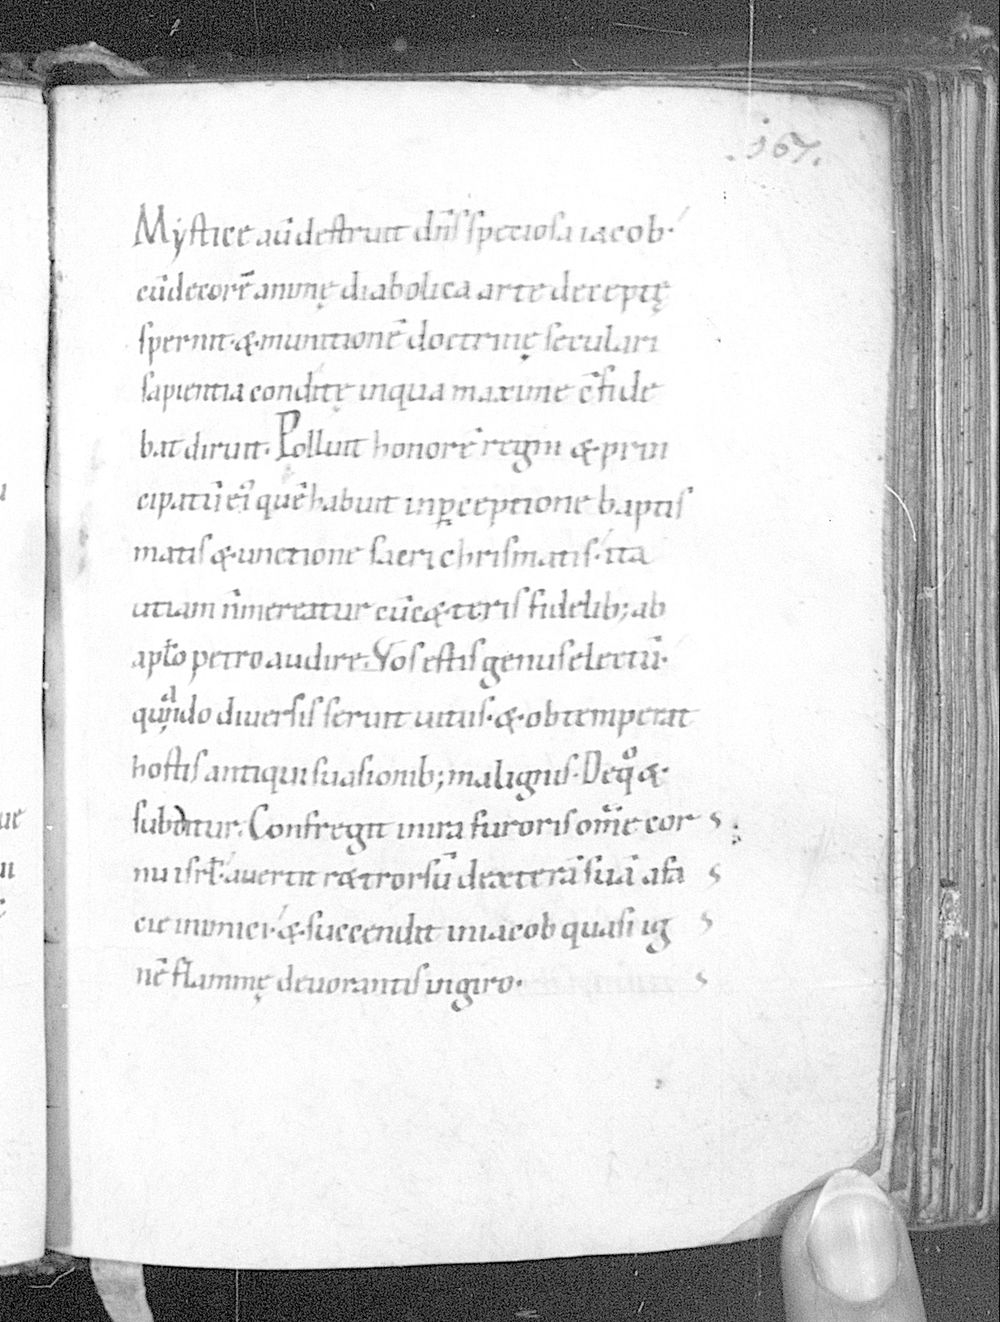 .167.
Mystice aū destruit dñs speciosa iacob·
cū decorē animę diabolica arte deceptę
spernit· & munitionē doctrinę seculari
sapientia conditę in qua maxime c̄fide
bat diruit. Polluit honorē regni & prin
cipatū ei' quē habuit in ꝑceptione baptis
matis & unctione sacri chrismatis· ita
ut iam ñ mereatur cū cęteris fidelib; ab
apƚo petro audire. Vos estis genus electū·
quando diuersis seruit uitiis· & obtemperat
hostis antiqui suasionib; malignis· De q̊ &
subditur. Confregit in ira furoris om̄e cor
nu isrł· auertit retrorsū dexterā suā a fa
cie inimici· & succendit in iacob quasi ig
nē flammę deuorantis in giro·
ue